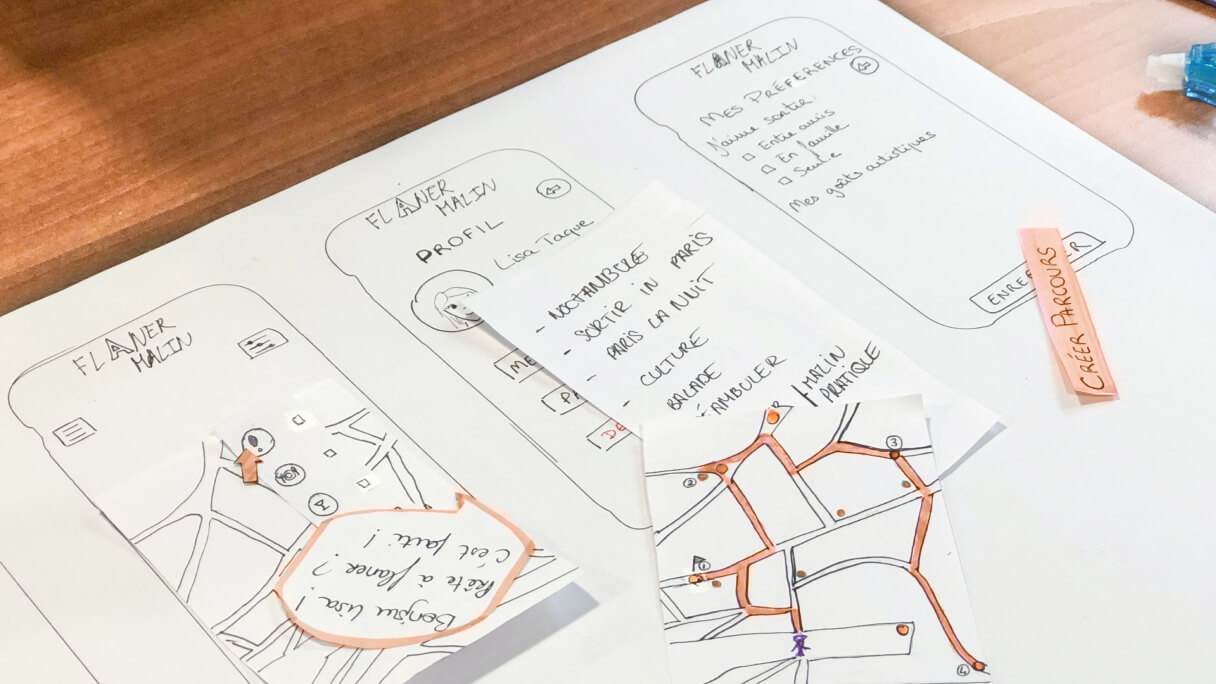 FLANER
MALIN
Bonjour Lisa!
Prête à flaner?
C'est parti!
FLANER
MALIN
PROFIL
Lisa Taque
ME
PA
DÉ
- NOCTAMBULE
- SORTIR IN PARIS
- PARIS LA NUIT
- CULTURE
BALADE
AMBULER
MALIN
PRATIQUE
2
3
4
FLANER
MALIN
MES PRÉFÉRENCES
J'aime sortir:
Entre amis
En famille
Seule
Mes goûts artistiques
ENRE ER
CRÉER PARCOURS